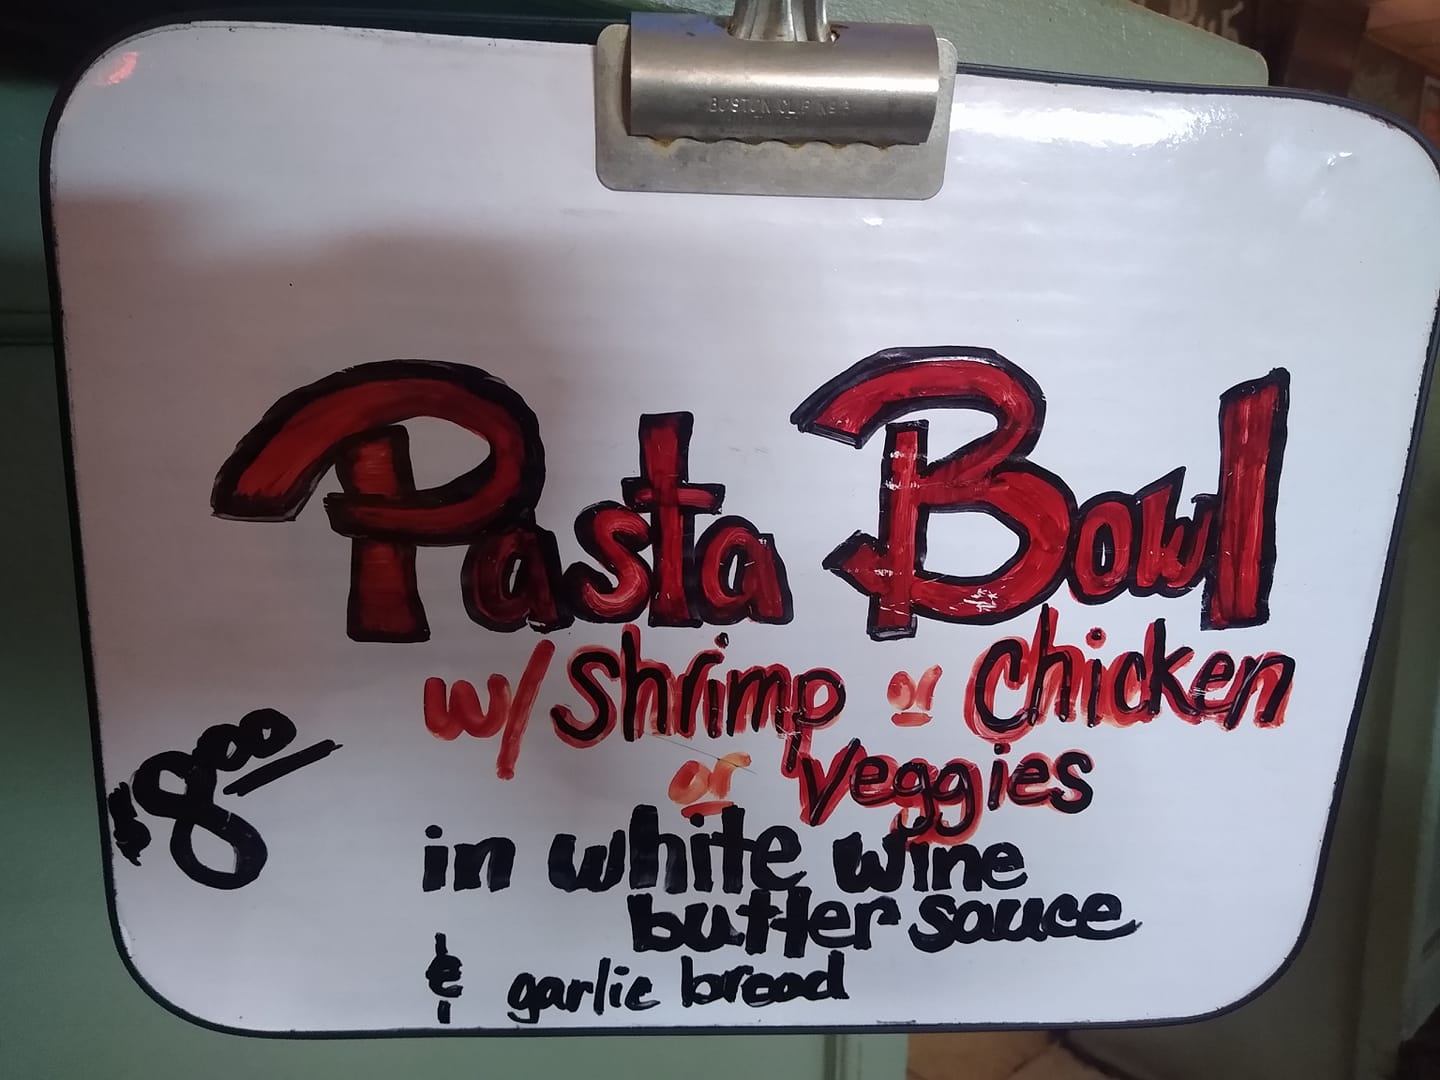 BOSTON CLIP No 3
Pasta Bowl
w/ shrimp or chicken
or veggies
$8.00
in white wine
butter sauce
& garlic bread